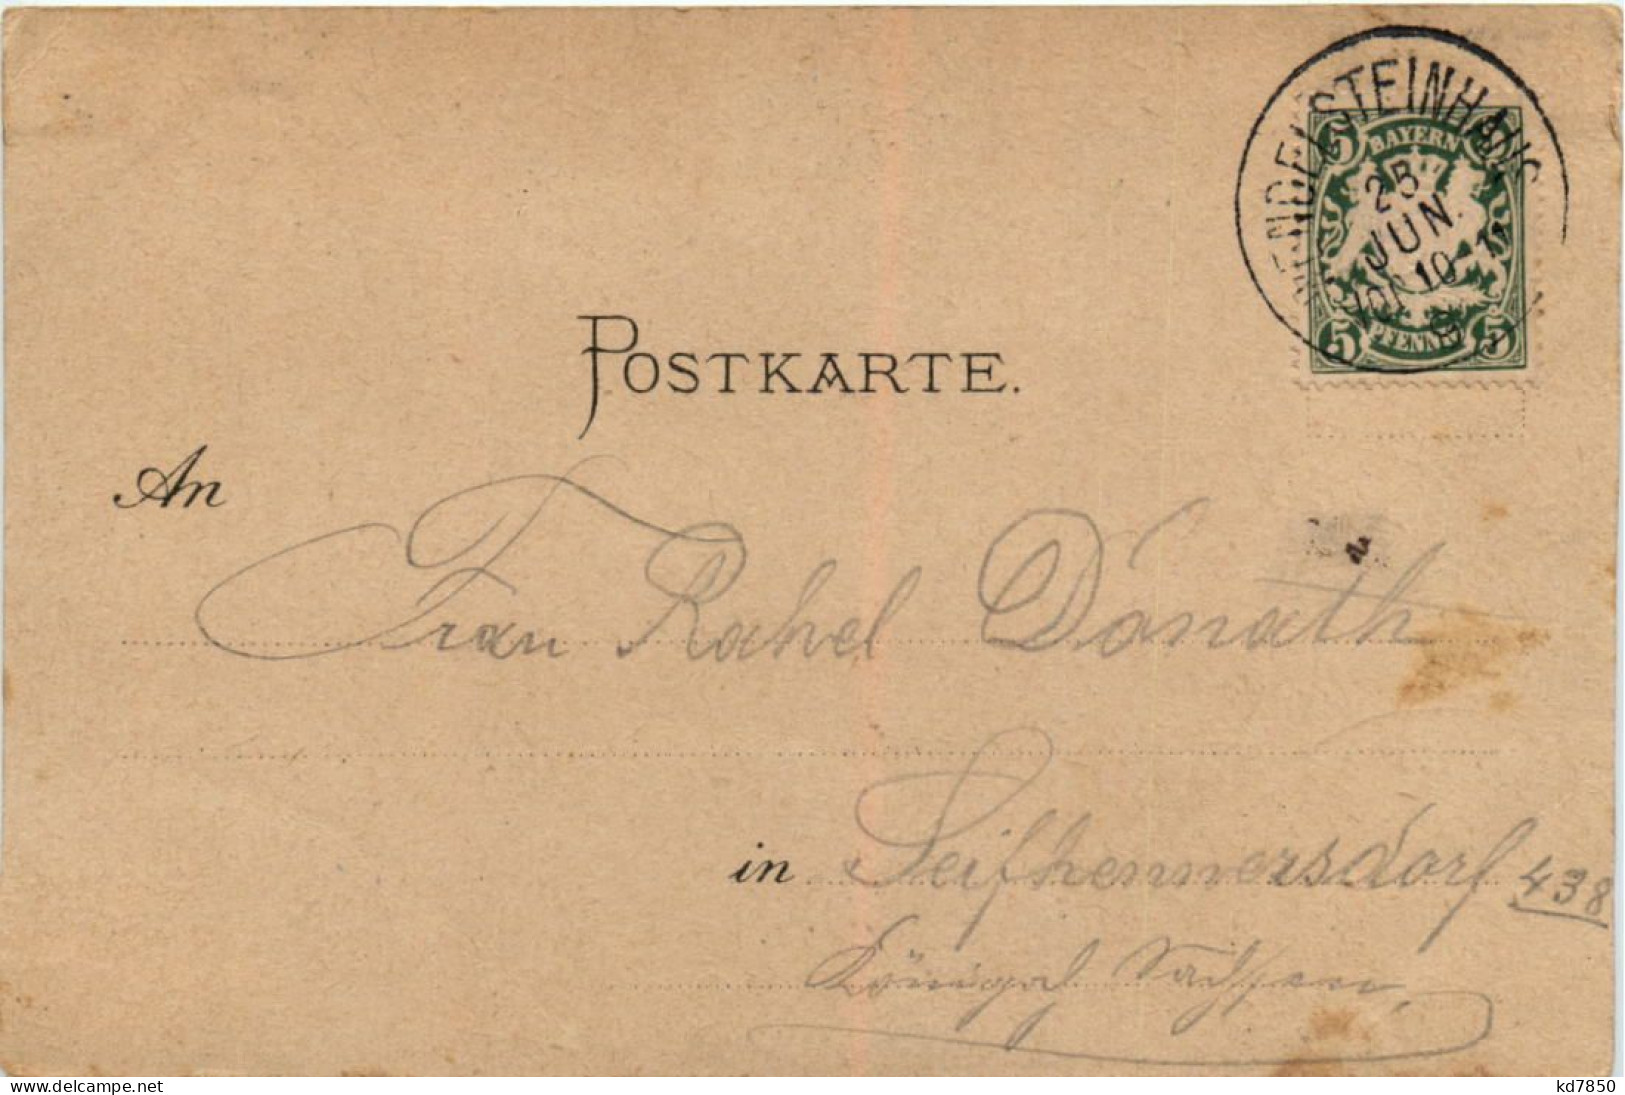 WENDELSTEINHAUS
5 BAYERN 5
25
JUN.
10-11
5 PFENNIG 5
POSTKARTE.
An
Frau Rahel Donath
in Seifhennersdorf 438
Königr. Sachsen
www.delcampe.net
kd7850